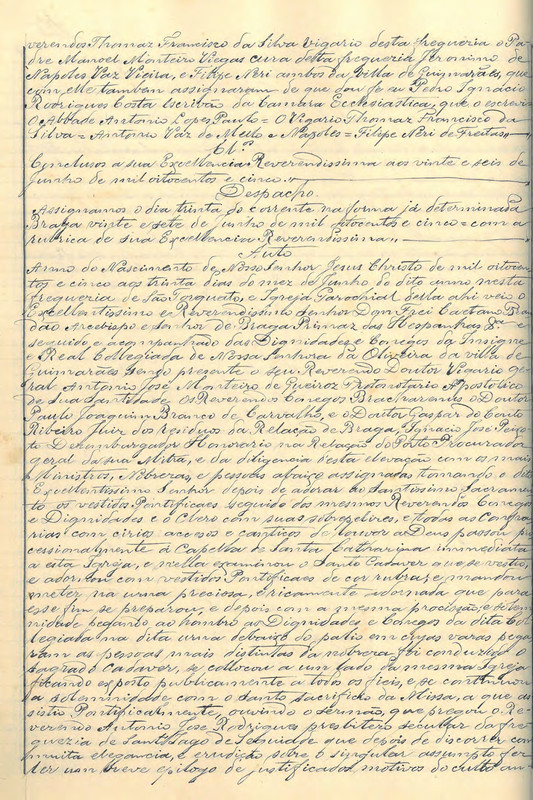 verendos Thomaz Francisco da Silva Vigario desta freguezia o Pa-
dre Manoel Monteiro Viegas cura desta freguezia Jeronimo de
Napoles Vaz Vieira, e Filipe Neri ambos da Villa de Guimarães, que
com elle tambem assignaram de que dou fé eu Pedro Ignacio
Rodrigues Costa Escrivão da Camara Ecclesiastica, que o escrevi
O Abbade Antonio Lopes Paulo = O Vigario Thomaz Francisco da
Silva = Antonio Vaz de Mello e Napoles = Filipe Neri de Freitas
Cl.os
Conclusos a sua Excellencia Reverendissima aos vinte e seis de
Junho de mil oitocentos e cinco.,,
Despacho.
Assignamos o dia trinta do corrente na forma já determinada
Braga vinte e sete de Junho de mil oitocentos e cinco = com a
rubrica de sua Excellencia Reverendissima,,
Auto
Anno do Nascimento de Nosso Senhor Jesus Christo de mil oitocen-
tos e cinco aos trinta dias do mez de Junho do dito anno nesta
freguezia de São Torquato, e Igreja Parochial della ahi veio o
Excellentissimo e Reverendissimo Senhor Dom Frei Caetano Bran-
dão Arcebispo e Senhor de Braga Primaz das Hespanhas &a e
seguido e acompanhado das Dignidades e Conegos da Insigne
e Real Collegiada de Nossa Senhora da Oliveira da villa de
Guimarães sendo presente o seu Reverendo Doutor Vigario ge-
ral Antonio José Monteiro de Queiroz Protonotario Apostolico
de Sua Santidade, os Reverendos Conegos Bracharenses o Doutor
Paulo Joaquim Branco de Carvalho, e o Doutor Gaspar do Couto
Ribeiro Juiz dos Residuos da Relação de Braga, Ignacio José Peixo-
to Desembargador Honorario na Relação do Porto Procurador
geral da sua Mitra, e da diligencia desta elevação com os mais
Ministros, Nobreza, e pessoas abaixo assignadas tomando o dito
Excellentissimo Senhor depois de adorar ao Santissimo Sacramen-
to os vestidos Pontificaes seguido dos mesmos Reverendos Conegos
e Dignidades e o Clero com suas sobrepelizes, e todas as Confra-
rias com cirios accesos e canticos de louvor a Deus passou pro-
cessionalmente á Capella de Santa Catharina immediata
a esta Igreja, e nella examinou o Santo Cadaver que se vestio,
e adornou com vestidos Pontificaes de cor rubra; e mandou
meter na urna preciosa, e ricamente adornada que para
esse fim se preparou, e depois com a mesma procissão, e solem-
nidade pegando ao hombro as Dignidades e Conegos da dita Col-
legiada na dita urna debaixo do palio em cujas varas pega-
ram as pessoas mais distintas da nobreza foi conduzido o
sagrado Cadaver, se collocou a um lado da mesma Igreja
ficando exposto publicamente a todos os fieis, e se continuou
a solemnidade com o santo sacrificio da Missa, a que as-
sistiu Pontificalmente, ouvindo o sermão, que pregou o Re-
verendo Antonio José Rodrigues, presbitero secular da fre-
guezia de Santiago de que depois de discorrer com
muita elegancia, e erudição sobre o singular assumpto fez
ler um breve epilogo de justificados motivos do culto an-